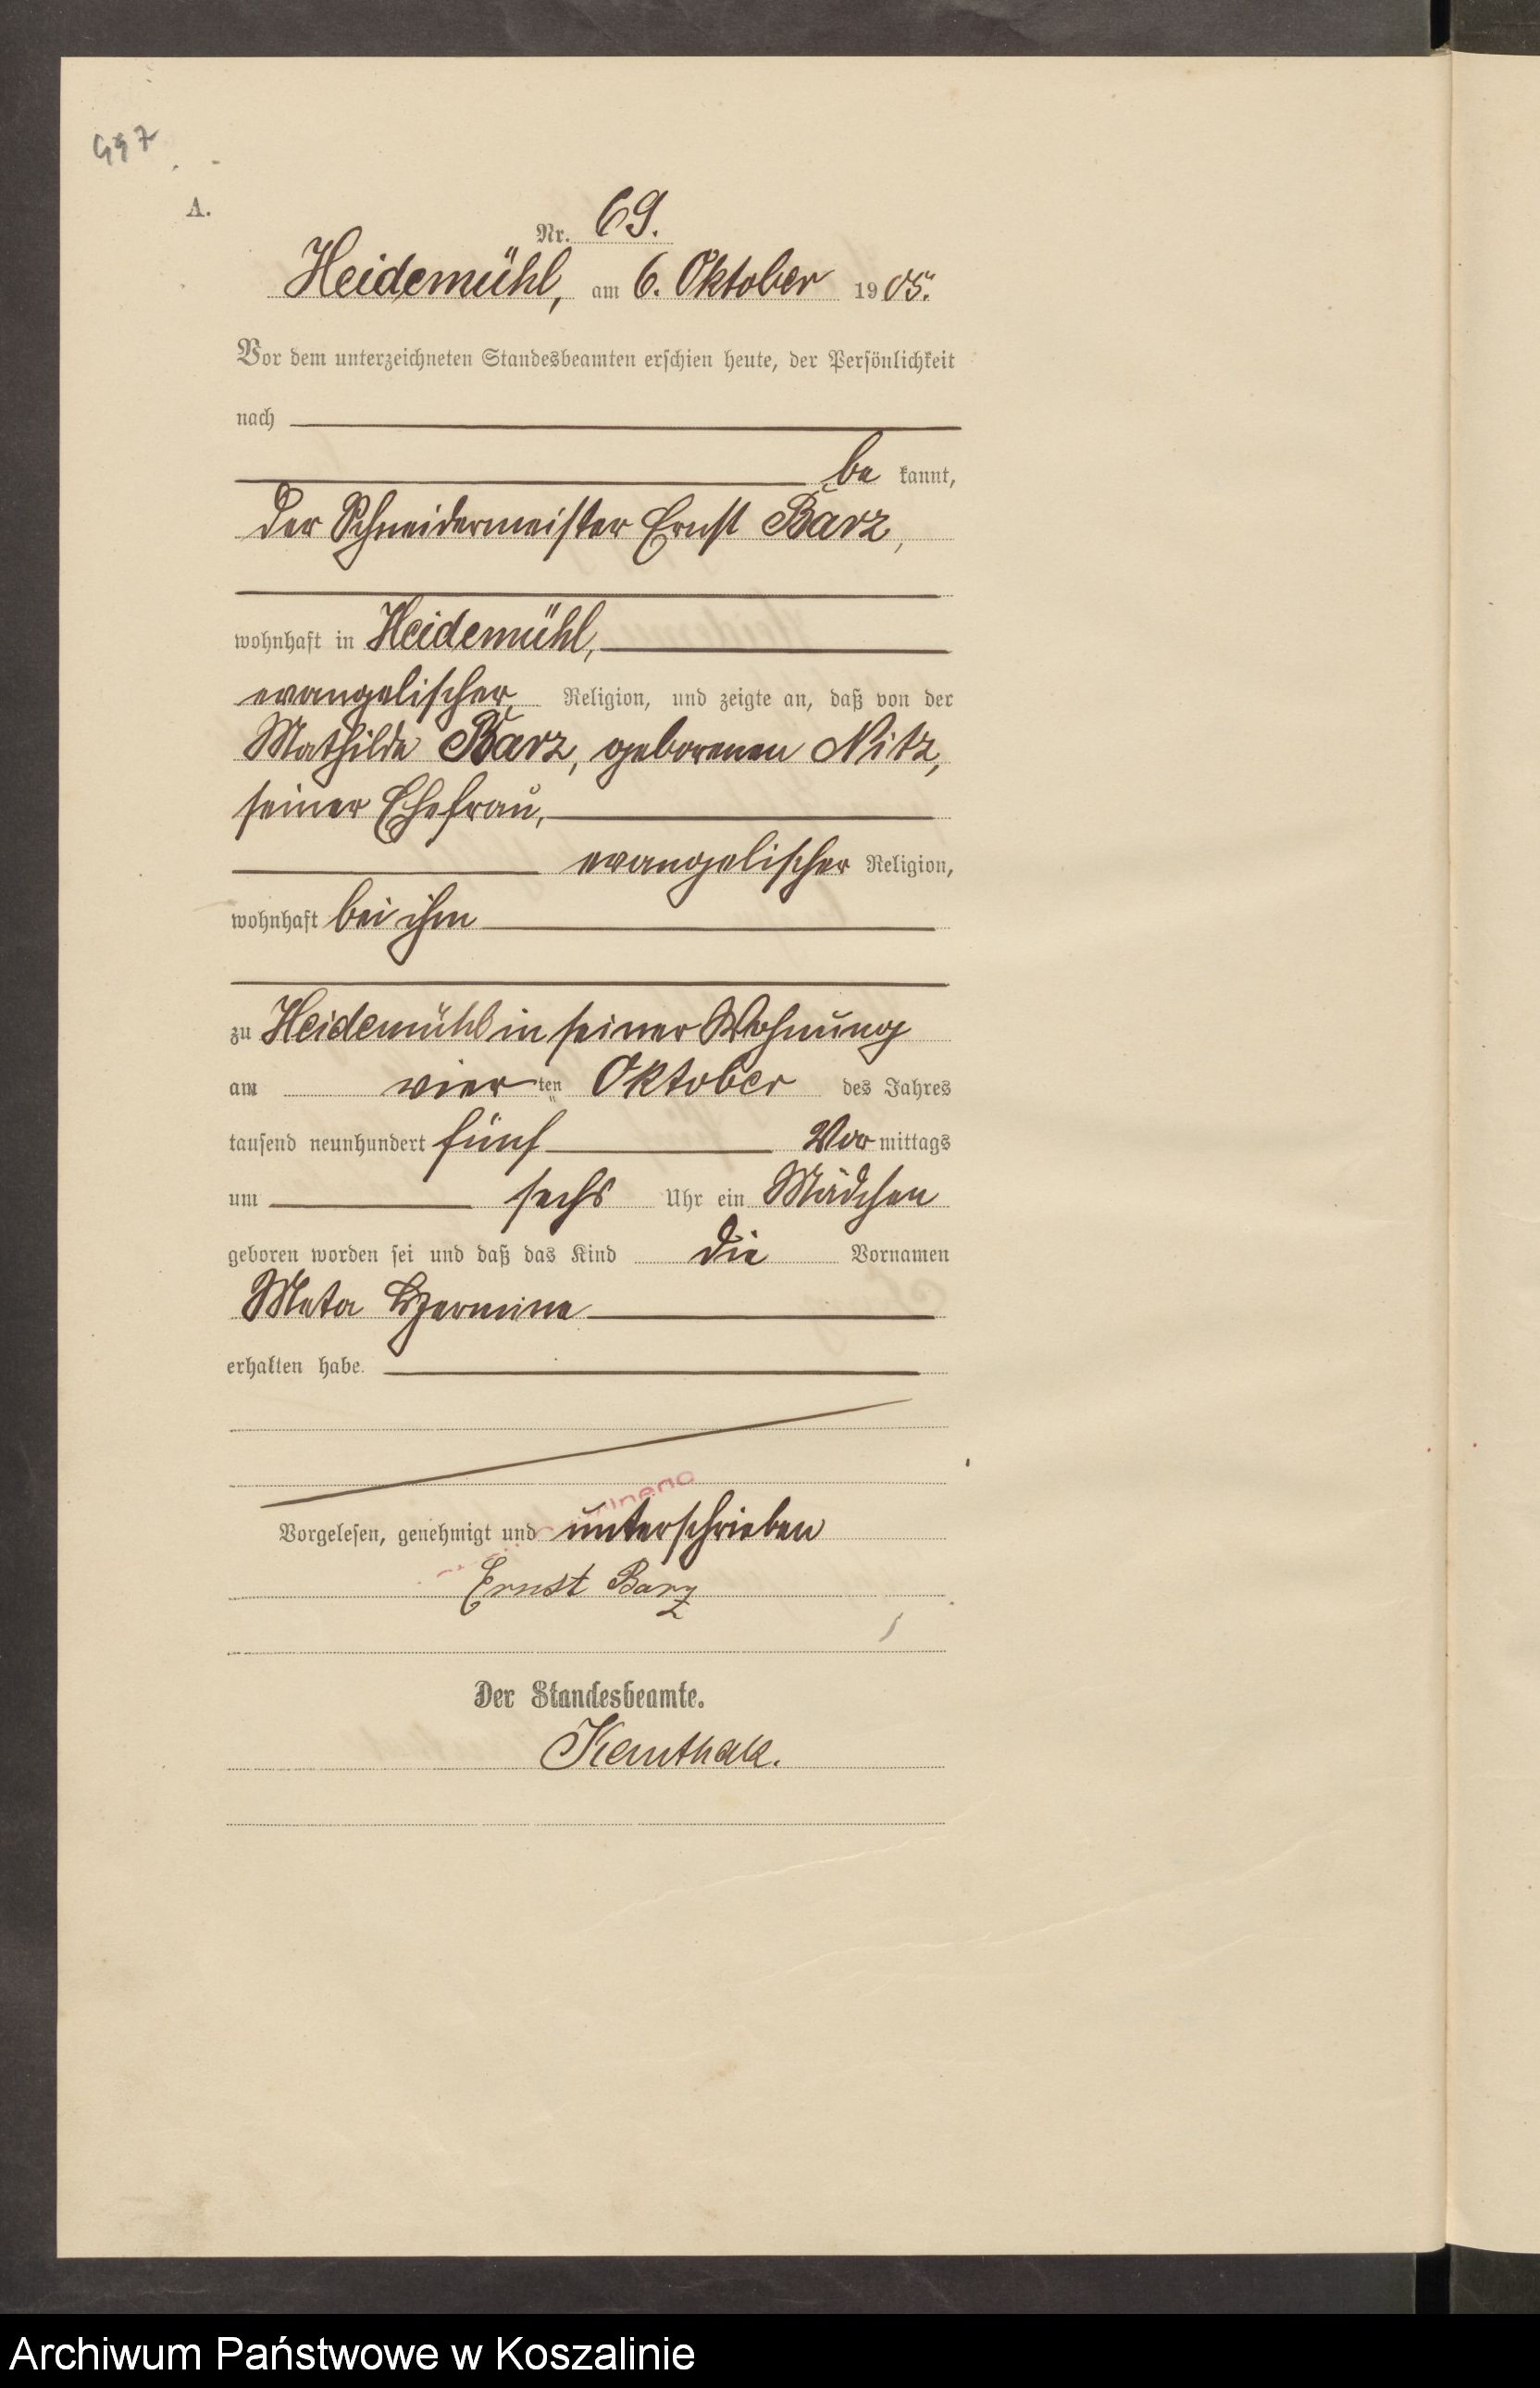 A.
Nr. 69.
Heidemühl, am 6. Oktober 1905.
Vor dem unterzeichneten Standesbeamten erschien heute, der Persönlichkeit
nach
be kannt,
der Schneidermeister Ernst Barz,
wohnhaft in Heidemühl,
evangelischer Religion, und zeigte an, daß von der
Mathilde Barz, geborenen Nitz,
seiner Ehefrau,
evangelischer Religion,
wohnhaft bei ihm
zu Heidemühl in seiner Wohnung
am vier ten Oktober des Jahres
tausend neunhundert fünf Vor mittags
um sechs Uhr ein Mädchen
geboren worden sei und daß das Kind die Vornamen
Meta Hermine
erhalten habe.
Vorgelesen, genehmigt und unterschrieben
Ernst Barz
Der Standesbeamte.
Archiwum Państwowe w Koszalinie